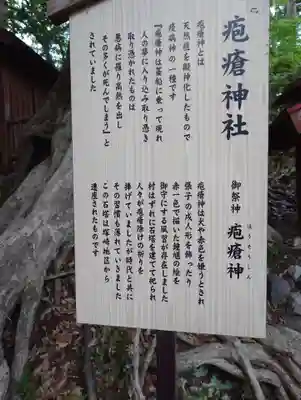 疱瘡神社
御祭神 疱瘡神
ほうそうしん
疱瘡神とは
天然痘を擬神化したもので
疫病神の一種です
『疱瘡神は茎船に乗って現れ
人の夢に入り込み取り憑き
取り憑かれたものは
悪病に罹り高熱を出し
その多くが死んでしまう』と
されていました
疱瘡神は犬や赤色を嫌うとされ
張子の戌人形を飾ったり
赤一色で描いた鍾馗の絵を
御守にする風習が存在しました
村はずれに石塔を建てて祀られ
人々が疱瘡除けの祈りを
捧げていましたが時代と共に
その習慣も薄れていきました
この石塔は塚崎地区から
遷座されたものです